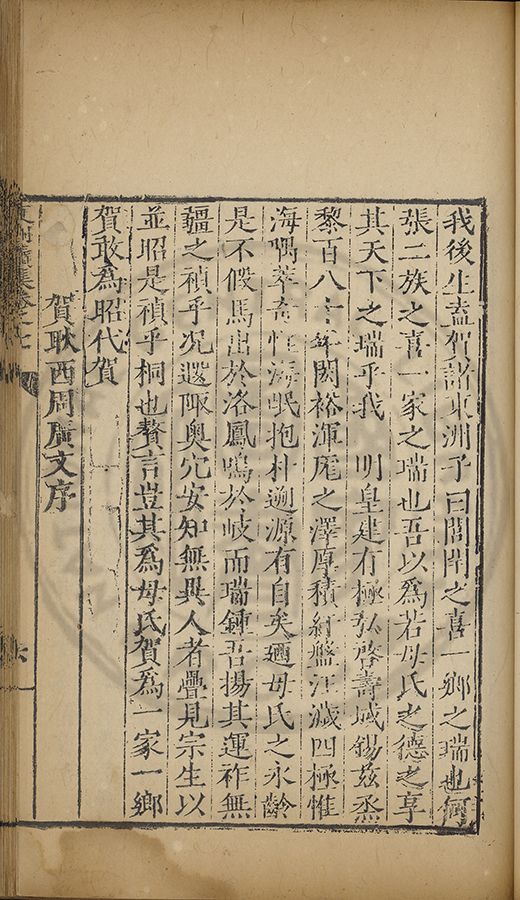 我後生盍賀諸東洲子曰閭閈之喜一鄉之瑞也何
張二族之喜一家之瑞也吾以爲若母氏之德之享
其天下之瑞乎我 明皇建有極弘啓壽域錫茲烝
黎百八十年闕裕渾厖之澤厚積紆盤汪濊四極惟
海嵎萃奇惟海岷抱朴遡源有自矣廼母氏之永齡
是不假馬出於洛鳳鳴於岐而瑞鍾吾揚其運祚無
疆之禎乎况遐陬奥穴安知無異人者疊見宗生以
並昭是禎乎桐也贅言豈其爲母氏賀爲一家一鄉
賀敢爲昭代賀
賀耿西周廣文序
集卷之七